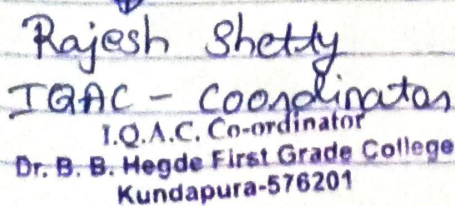 Rajesh Shetty
IQAC - Coordinator
I.Q.A.C. Co-ordinator
Dr. B. B. Hegde First Grade College
Kundapura-576201